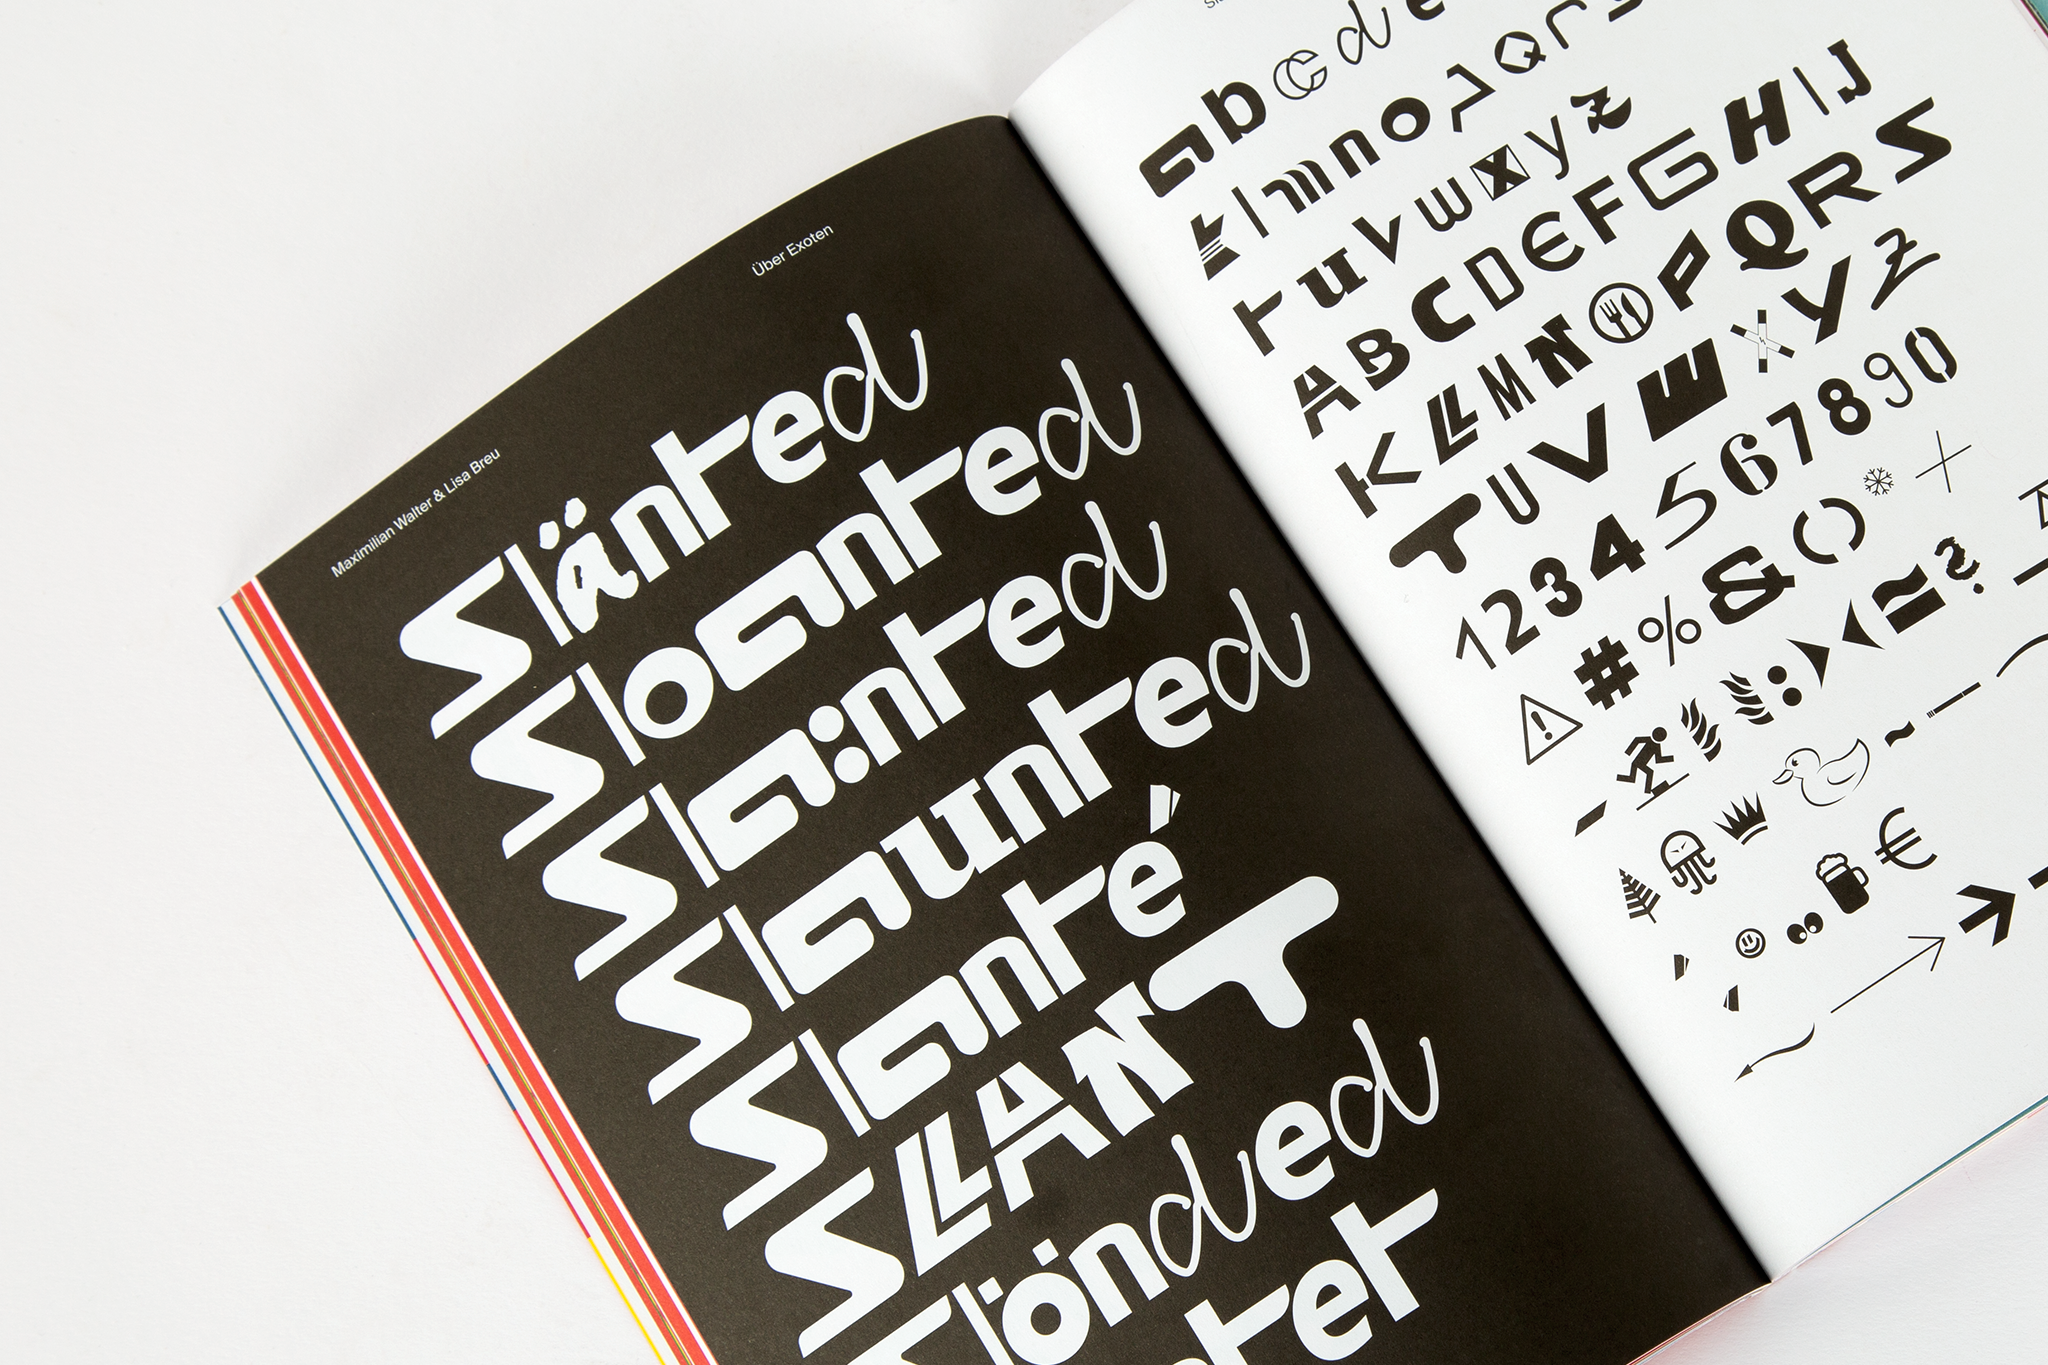 Maximilian Walter & Lisa Breu
Über Exoten
Slänted
Slocanted
Sla:nted
Slaunted
Slanté
SLLANT
Slönded
a b c d e
k l m n o p q r s
t u v w x y z
A B C D E F G H I J
K L M N P Q R S
T U V W X Y Z
1 2 3 4 5 6 7 8 9 0
# % & ( )
€